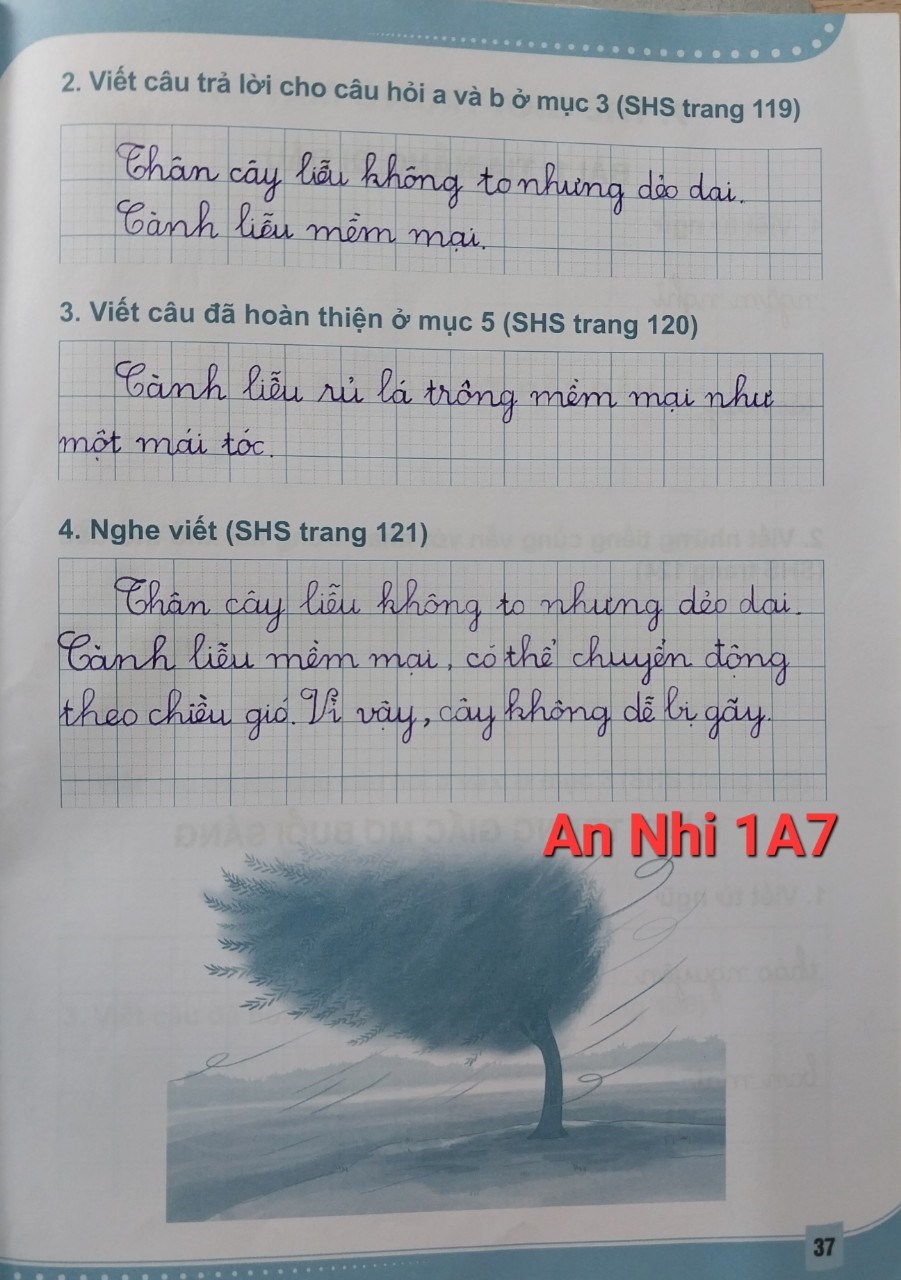 2. Viết câu trả lời cho câu hỏi a và b ở mục 3 (SHS trang 119)
Thân cây liễu không to nhưng dẻo dai.
Cành liễu mềm mại.
3. Viết câu đã hoàn thiện ở mục 5 (SHS trang 120)
Cành liễu rủ lá trông mềm mại như
một mái tóc.
4. Nghe viết (SHS trang 121)
Thân cây liễu không to nhưng dẻo dai.
Cành liễu mềm mại, có thể chuyển động
theo chiều gió. Vì vậy, cây không dễ bị gãy.
An Nhi 1A7
37